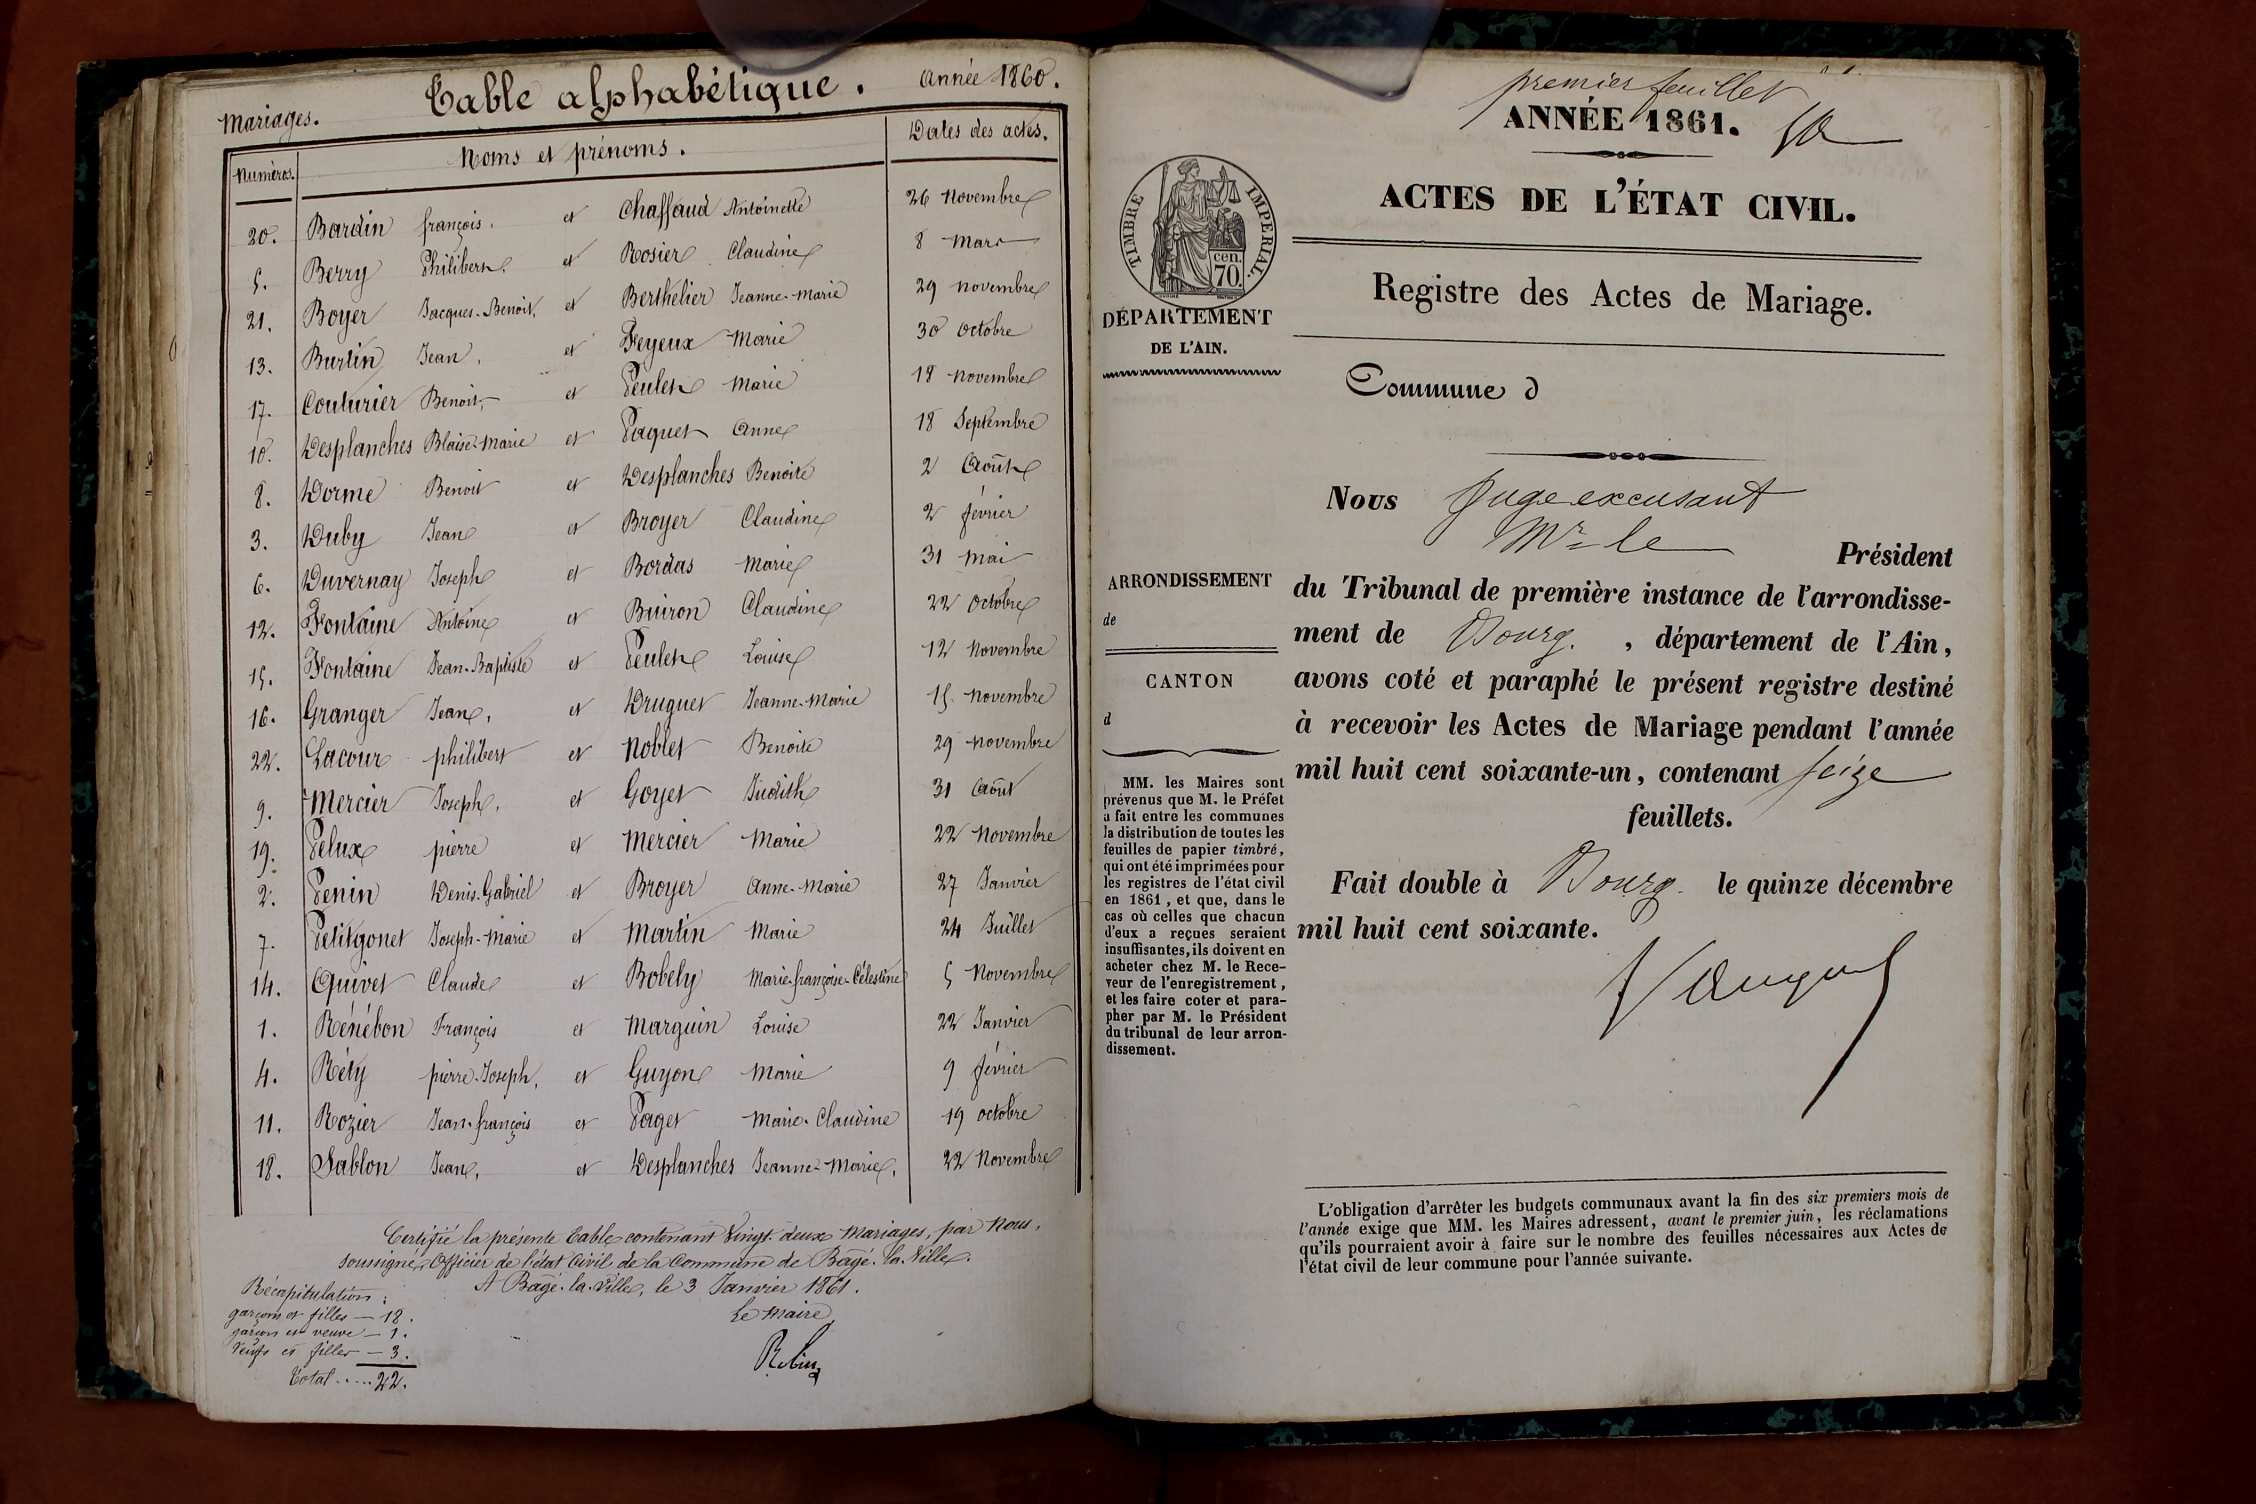 Mariages. Table alphabétique. Année 1860.
Numéros. Noms et prénoms. Dates des actes.
20. Bardin françois. et Chaffaud Antoinette 26 Novembre
5. Berry Philibert. et Rosier Claudine 8 Mars
21. Boyer Jacques-Benoit, et Berthelier Jeanne-Marie 29 novembre
13. Burtin Jean. et Feyeux Marie 30 octobre
17. Couturier Benoit, et Peulet Marie 18 novembre
10. Desplanches Blaise-Marie et Paquet Anne 18 Septembre
8. Dorme Benoit et Desplanches Benoite 2 Août
3. Duby Jean et Broyer Claudine 2 février
6. Duvernay Joseph et Bordas Marie 31 Mai
12. Fontaine Antoine et Buiron Claudine 22 Octobre
15. Fontaine Jean-Baptiste et Peulet Louise 12 Novembre
16. Granger Jean, et Druguet Jeanne-Marie 15 novembre
22. Lacour philibert et Noblet Benoite 29 novembre
9. Mercier Joseph, et Goyet Judith 31 Août
19. Pelux pierre et Mercier Marie 22 Novembre
2. Penin Denis-Gabriel et Broyer Anne-Marie 27 Janvier
7. Petitgonet Joseph-Marie et Martin Marie 24 Juillet
14. Quivet Claude et Bobely Marie-françoise-Célestine 5 Novembre
1. Rénébon François et Marguin Louise 22 Janvier
4. Réty pierre-Joseph, et Guyon Marie 9 février
11. Rozier Jean-françois et Paget Marie-Claudine 19 octobre
18. Sablon Jean, et Desplanches Jeanne-Marie, 22 Novembre
Certifié la présente table contenant vingt-deux Mariages, par Nous,
soussigné, Officier de l'état civil de la Commune de Bâgé-la-Ville.
A Bâgé-la-Ville, le 3 Janvier 1861.
Le Maire
Robin
Récapitulation:
garçons et filles — 18.
garçon et veuve — 1.
Veufs et filles — 3.
Total.....22.
premier feuillet
ANNÉE 1861.
TIMBRE IMPERIAL.
cen.
70.
DÉPARTEMENT
DE L'AIN.
ACTES DE L'ÉTAT CIVIL.
Registre des Actes de Mariage.
Commune d
Nous Juge excusant
Mr le Président
du Tribunal de première instance de l'arrondisse-
ment de Bourg. , département de l'Ain,
avons coté et paraphé le présent registre destiné
à recevoir les Actes de Mariage pendant l'année
mil huit cent soixante-un, contenant seize
feuillets.
Fait double à Bourg. le quinze décembre
mil huit cent soixante.
ARRONDISSEMENT
de
CANTON
d
MM. les Maires sont
prévenus que M. le Préfet
a fait entre les communes
la distribution de toutes les
feuilles de papier timbré,
qui ont été imprimées pour
les registres de l'état civil
en 1861, et que, dans le
cas où celles que chacun
d'eux a reçues seraient
insuffisantes, ils doivent en
acheter chez M. le Rece-
veur de l'enregistrement,
et les faire coter et para-
pher par M. le Président
du tribunal de leur arron-
dissement.
L'obligation d'arrêter les budgets communaux avant la fin des six premiers mois de
l'année exige que MM. les Maires adressent, avant le premier juin, les réclamations
qu'ils pourraient avoir à faire sur le nombre des feuilles nécessaires aux Actes de
l'état civil de leur commune pour l'année suivante.